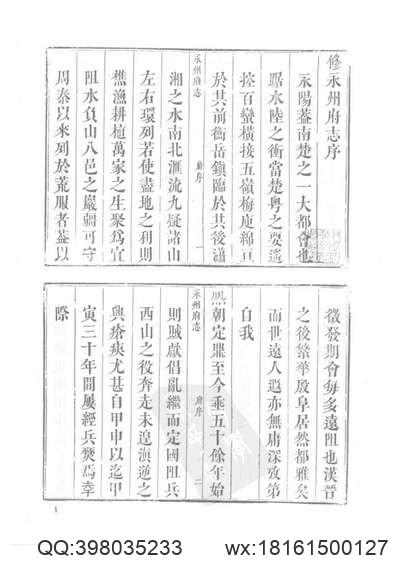 修永州府志序
永陽葢南楚之一大都會也
踞水陸之衝當楚粤之交遥
控百蠻橫接五嶺梅庾綿亘
於其前衡岳鎮臨於其後瀟
永州府志 舊序 一
湘之水南北滙流九疑諸山
左右環列若使盡地之利則
樵漁耕植萬家之生聚爲宜
阻水負山八邑之巖疆可守
周秦以來列於荒服者葢以
徵發期會每多遠阻也漢晉
之後繁華殷阜居然都雅矣
而世遠人遐亦無庸深攷第
自我
永州府志 舊序 二
熙朝定鼎至今垂五十餘年始
則賊獻倡亂繼而定國阻兵
西山之役奔走未遑滇逆之
與瘡痍尤甚自甲申以迄甲
寅三十年間屢經兵燹焉幸
際
1
QQ:398035233 wx:18161500127